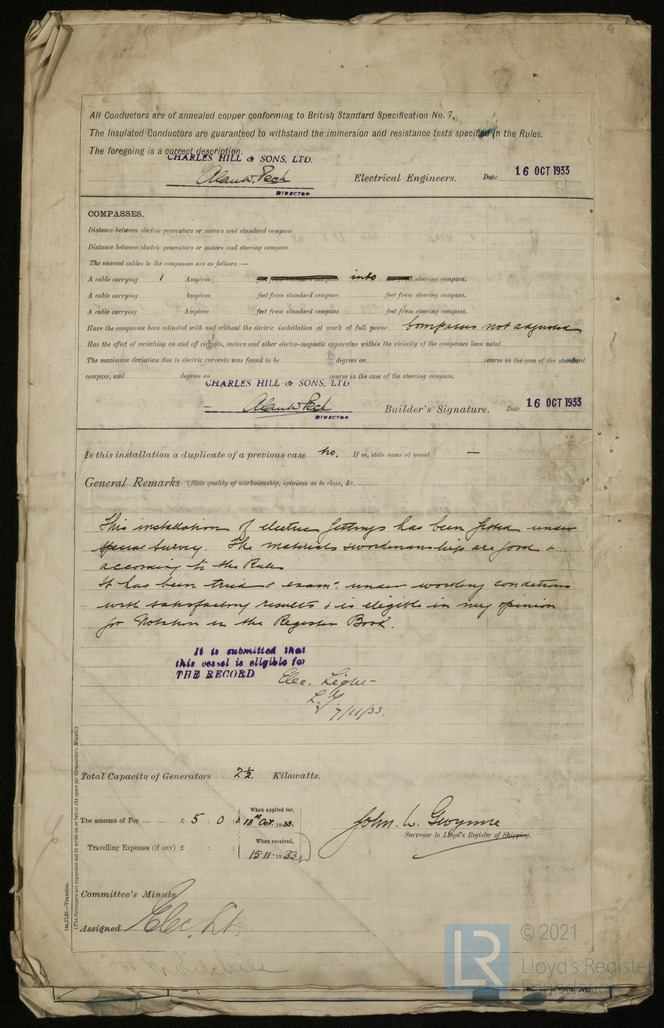 All Conductors are of annealed copper conforming to British Standard Specification No. 7.
The Insulated Conductors are guaranteed to withstand the immersion and resistance tests specified in the Rules.
The foregoing is a correct description.
CHARLES HILL & SONS, LTD.
Alan W. Peck Electrical Engineers. Date 16 OCT 1933
DIRECTOR
COMPASSES.
Distance between electric generators or motors and standard compass
Distance between electric generators or motors and steering compass
The nearest cables to the compasses are as follows:—
A cable carrying 1 Ampères into steering compass.
A cable carrying Ampères feet from standard compass feet from steering compass.
A cable carrying Ampères feet from standard compass feet from steering compass.
Have the compasses been adjusted with and without the electric installation at work at full power Compasses not adjusted
Has the effect of switching on and off circuits, motors and other electro-magnetic apparatus within the vicinity of the compasses been noted
The maximum deviation due to electric currents was found to be degrees on course in the case of the standard
compass, and degrees on course in the case of the steering compass.
CHARLES HILL & SONS, LTD.
Alan W. Peck Builder's Signature. Date 16 OCT 1933
DIRECTOR
Is this installation a duplicate of a previous case No. If so, state name of vessel —
General Remarks (State quality of workmanship, opinions as to class, &c.
This installation of electric fittings has been fitted under
Special Survey. The materials & workmanship are good &
according to the Rules
It has been tried & exam'd under working conditions
with satisfactory results & is eligible in my opinion
for Notation in the Register Book.
It is submitted that
this vessel is eligible for
THE RECORD
Elec. Light
7/11/33.
Total Capacity of Generators 2½ Kilowatts.
The amount of Fee ... ... £ 5 : 0 : 0
When applied for,
18th Oct. 1933.
John L. Gwynne
Surveyor to Lloyd's Register of Shipping.
Travelling Expenses (if any) £ : :
When received,
15.11.1933
Committee's Minute
Assigned Elec. Lt.
1m,11,26.—Transfer.
(The Surveyors are requested not to write on or below the space for Committee's Minute.)
LR
© 2021
Lloyd's Register